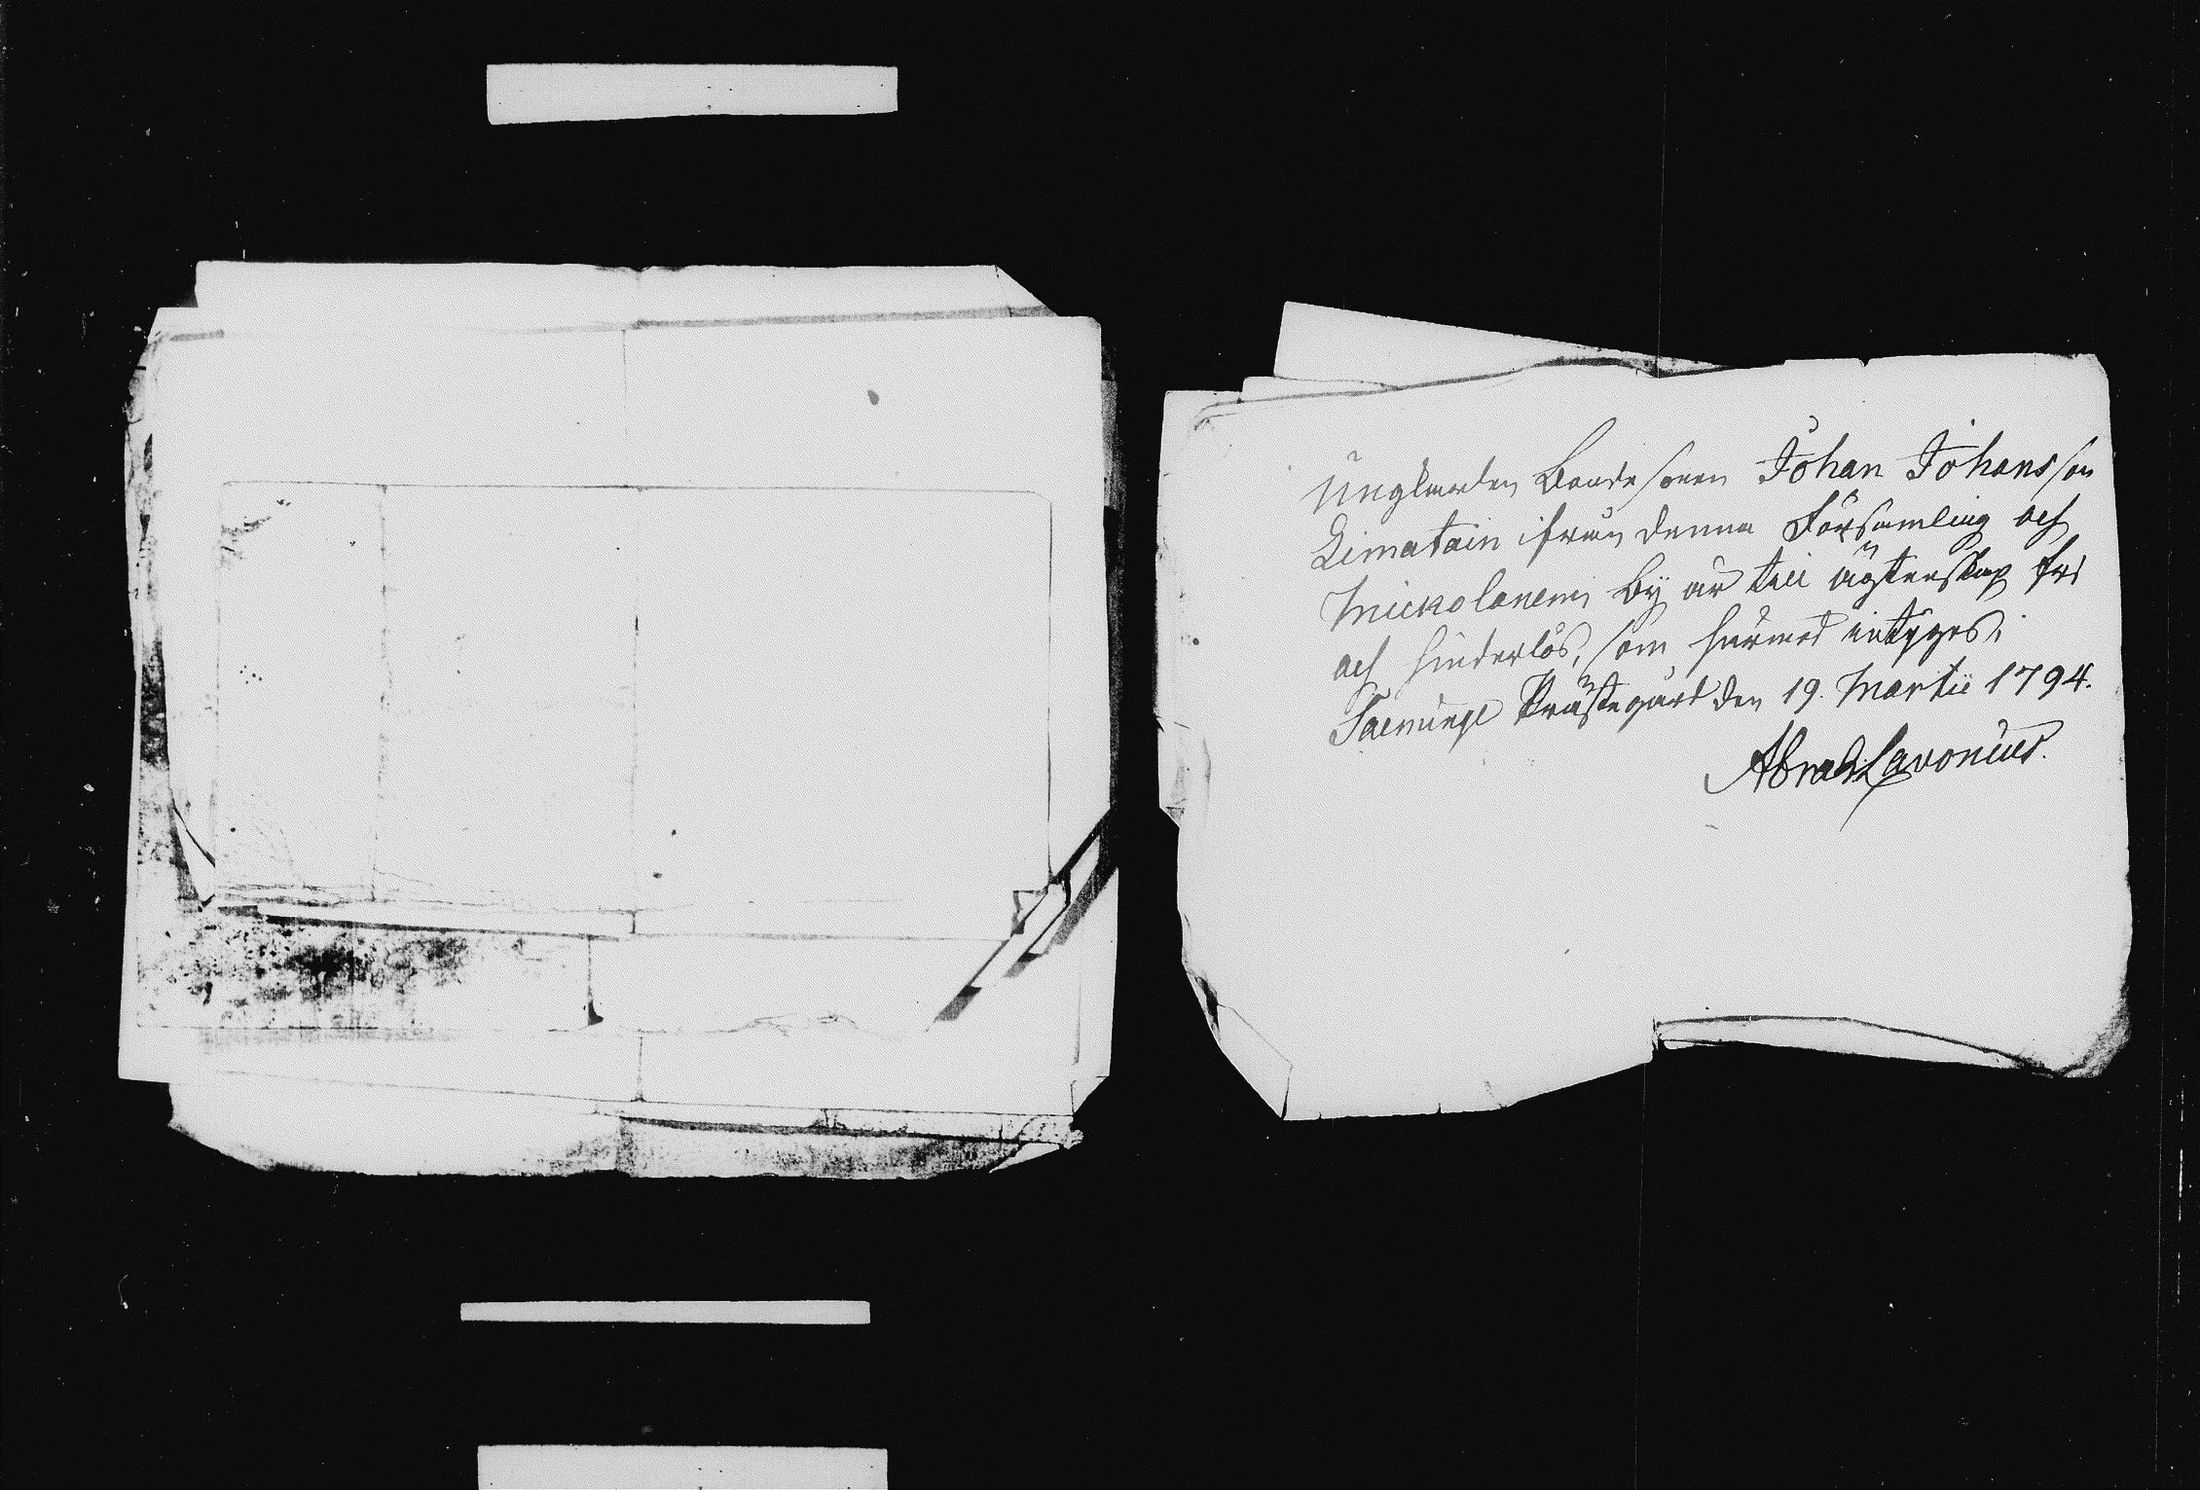 Ungkarlen Bondesonen Johan Johansson
Limatain ifrån denna Församling och
Mickolanemi By är till ägtenskap fri
och hinderlös, som härmed intyges.
Saeminge Prästegård den 19. Martii 1794.
Abrah: Lavonius.